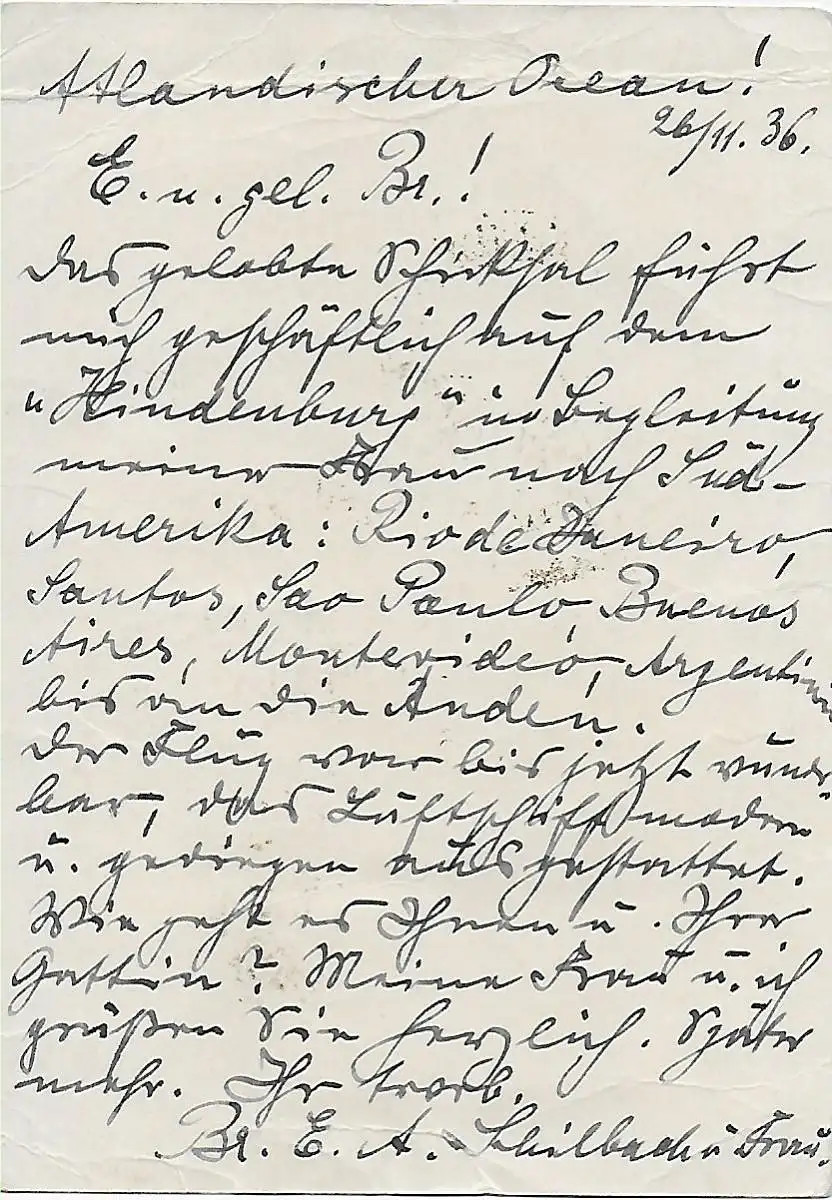 Atlandischer Ocean!
26/11. 36.
E. u. gel. Br.!
Das gelobte Schicksal führt
mich geschäftlich auf dem
"Hindenburg" in Begleitung
meiner Frau nach Süd-
Amerika: Rio de Janeiro,
Santos, Sao Paulo, Buenos
Aires, Montevideo, Argentinien
bis an die Anden.
Der Flug war bis jetzt wunder-
bar, das Luftschiff modern
u. gediegen ausgestattet.
Wie geht es Ihnen u. Ihrer
Gattin? Meine Frau u. ich
grüßen Sie herzlich. Später
mehr. Ihr
Br. E. A. Schilbach u Frau.